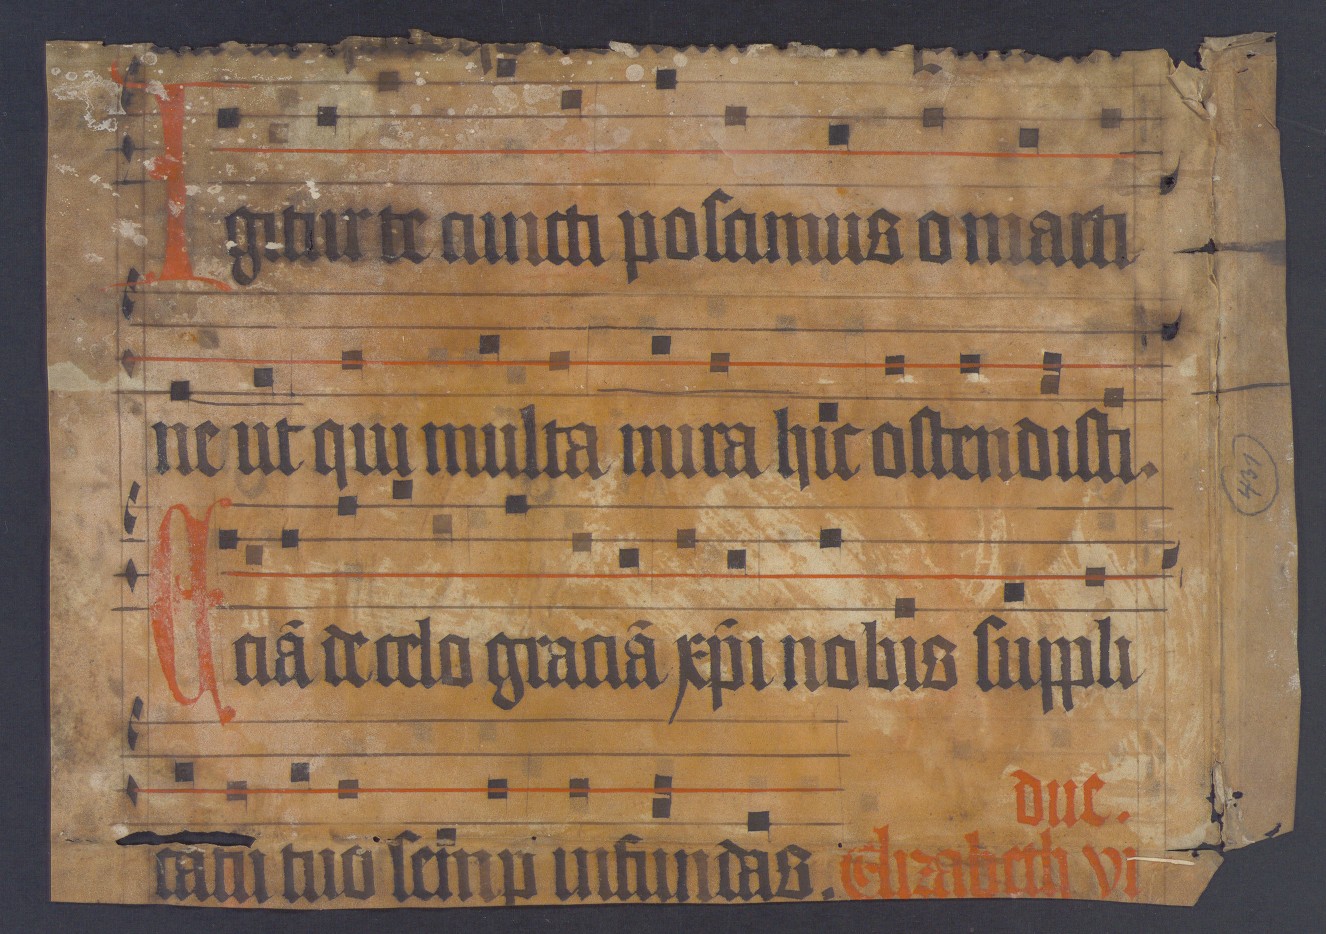 Igitur te cuncti poscimus o marti
ne ut qui multa mira hic ostendisti.
Eciā de celo graciā xp̄i nobis suppli
catu tuo semp infundas. Elizabeth vi
duc.
431